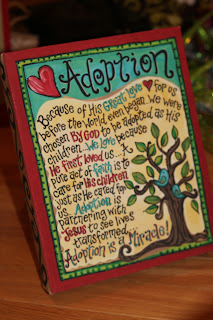 Adoption
Because of His Great Love for us
before the World even began...We were
chosen BY GOD to be adopted as His
children...We love because
He first loved us...A
pure act of faith is to
care for His children
just as He cared for
us. Adoption is
partnering with
Jesus to see lives
transformed.
Adoption is a Miracle!